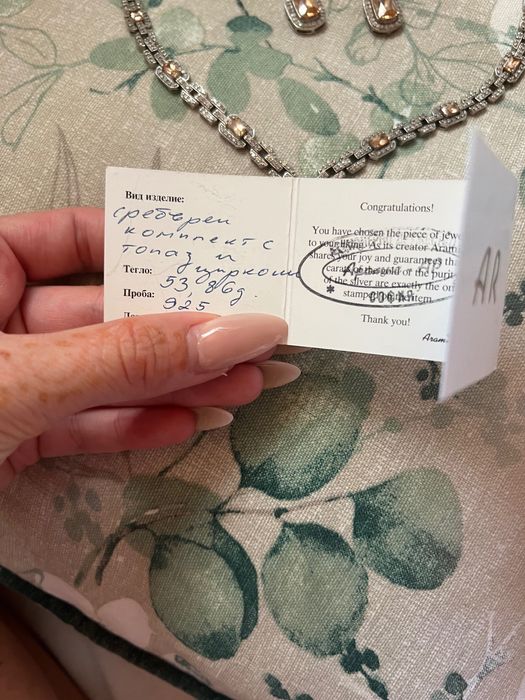 Вид изделие:
сребърен
комплект с
топаз и
циркони
Тегло: 53.86g.
Проба: 925
Congratulations!
You have chosen the piece of jewe
to your liking. As its creator Aram
shares your joy and guarantees th
carats of the gold or the purit
of the silver are exactly the on
stamped item.
СОФИЯ
Thank you!
Aram
AR